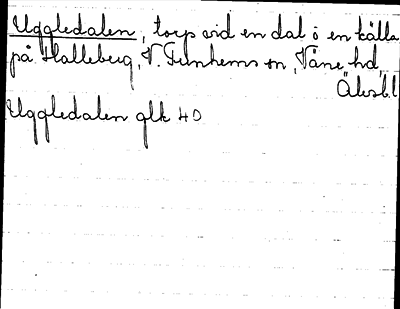 Uggledalen, torp vid en dal o en källa
på Halleberg, V. Tunhems sn, Väne hd,
Älvsb.l
Uggledalen glk 40